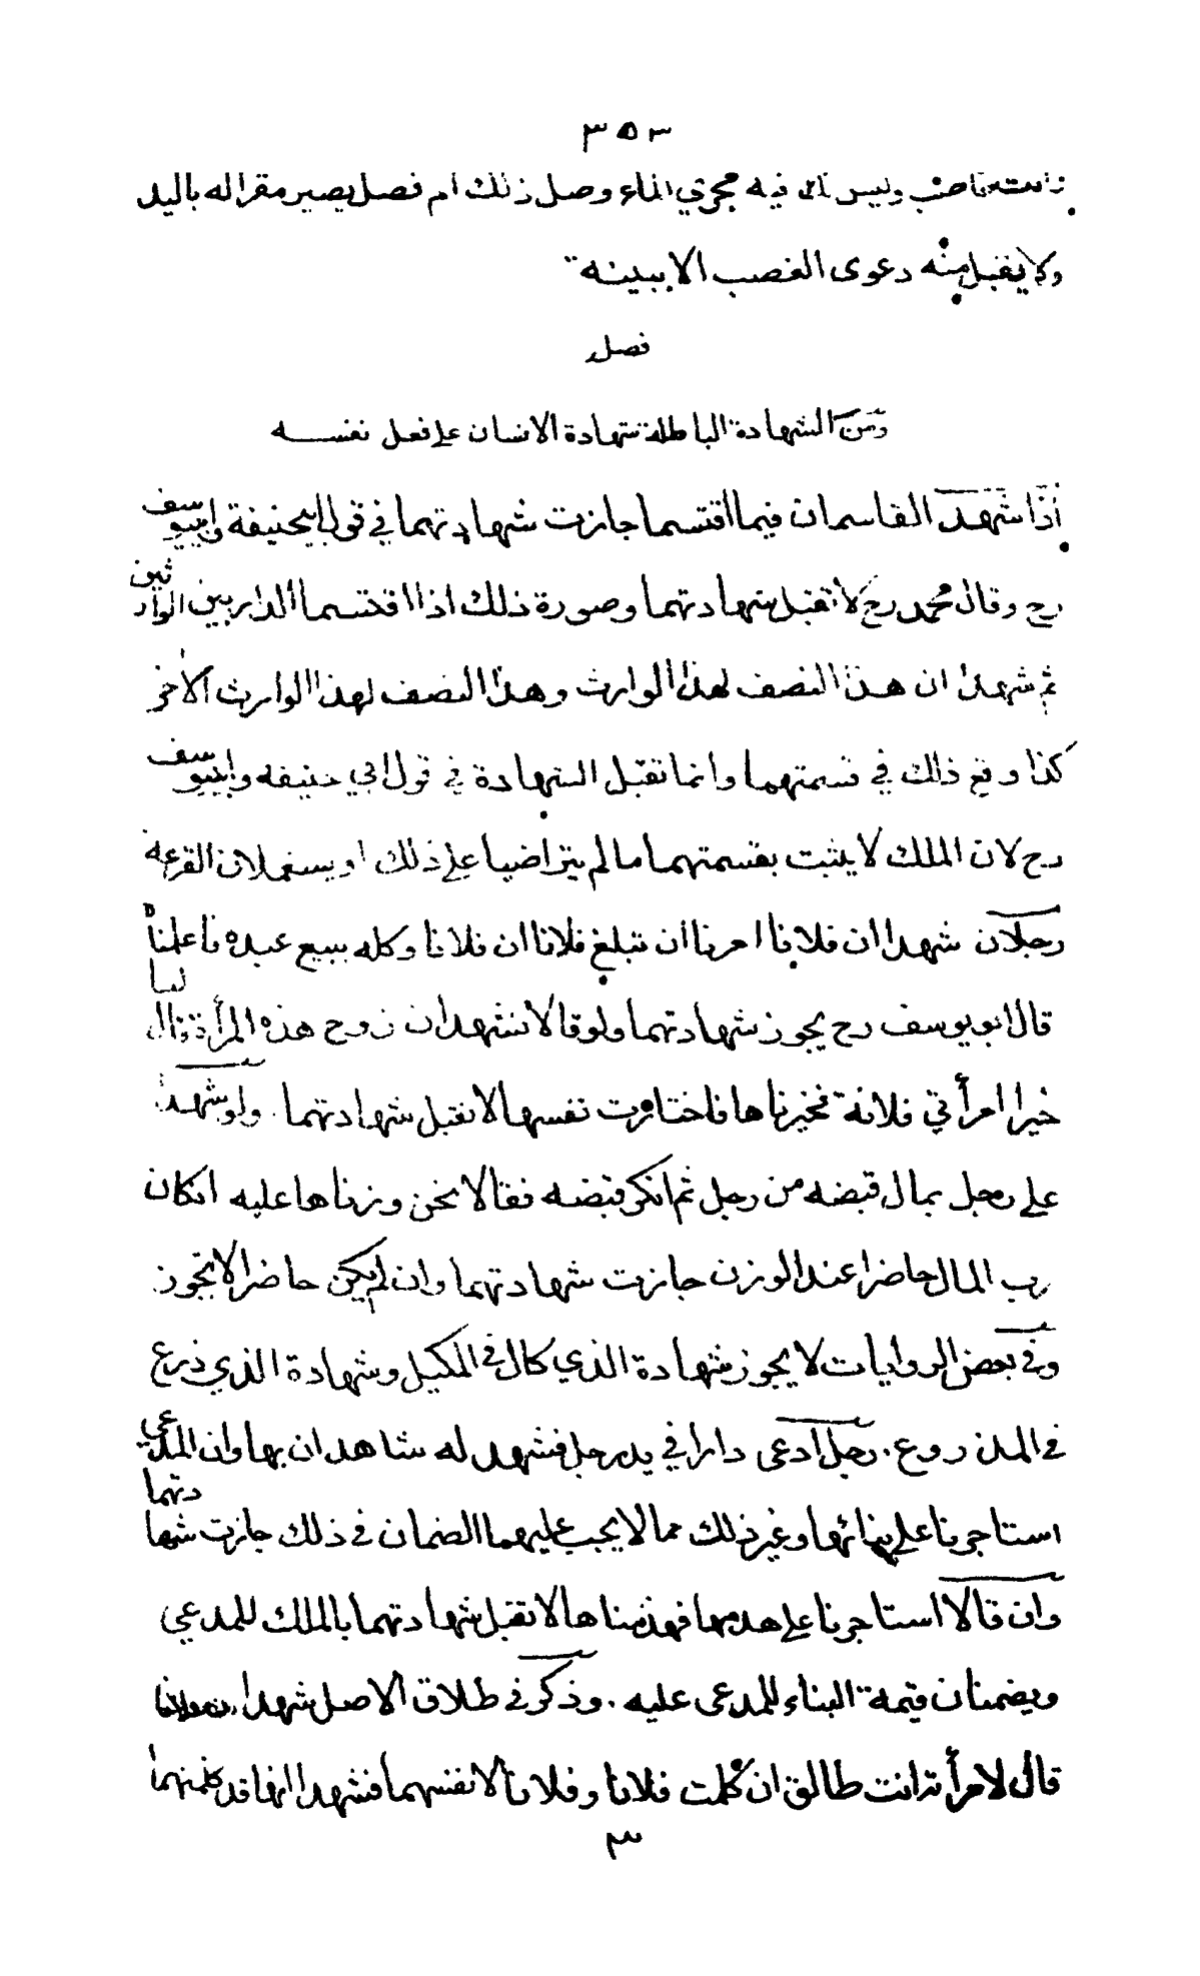 ٣٥٣
وليس لى فيه مجرى الماء وصل ذلك ام فصل يصير مقرا له باليد
ولا يقبل منه دعوى الغصب الا ببينة
فصل
ومن الشهادة الباطلة شهادة الانسان على فعل نفسه
اذا شهد القاسمان فيما اقتسما جازت شهادتهما في قول ابيحنيفة وابييوسف
رح وقال محمد رح لا تقبل شهادتهما وصورة ذلك اذا اقتسما الدار بين الوارثين
ثم شهدا ان هذا النصف لهذا الوارث وهذا النصف لهذا الوارث الاخر
كذا وقع ذلك في قسمتهما وانما تقبل الشهادة في قول ابي حنيفه وابييوسف
رح لان الملك لا يثبت بقسمتهما ما لم يتراضيا على ذلك او يستعملان القرعة
رجلان شهدا ان فلانا امرنا ان نبلغ فلانا ان فلانا وكله ببيع عبده فاعلمناه
قال ابو يوسف رح يجوز شهادتهما ولو قالا نشهد ان زوج هذه المرأة قال لنا
خيرا امرأتي فلانة فخيرناها فاختارت نفسها لا تقبل شهادتهما . ولو شهدا
على رجل بمال قبضه من رجل ثم انكر قبضه فقالا نحن وزناها عليه انكان
رب المال حاضرا عند الوزن جازت شهادتهما وان لم يكن حاضرا لا تجوز
وفى بعض الروايات لا يجوز شهادة الذي كال فى المكيل وشهادة الذي ذرع
فى المذروع . رجل ادعى دارا في يد رجل فشهد له شاهدان بها وان المدعي
استاجرنا على بنائها وغير ذلك مما لا يجب عليهما الضمان فى ذلك جازت شهادتهما
وان قالا استاجرنا على هدمها فهدمناها لا تقبل شهادتهما بالملك للمدعي
ويضمنان قيمة البناء للمدعى عليه . وذكر فى طلاق الاصل شهدا ان فلانا
قال لامرأته انت طالق ان كلمت فلانا وفلانا لانفسهما فشهدا انها قد كلمتهما
٣